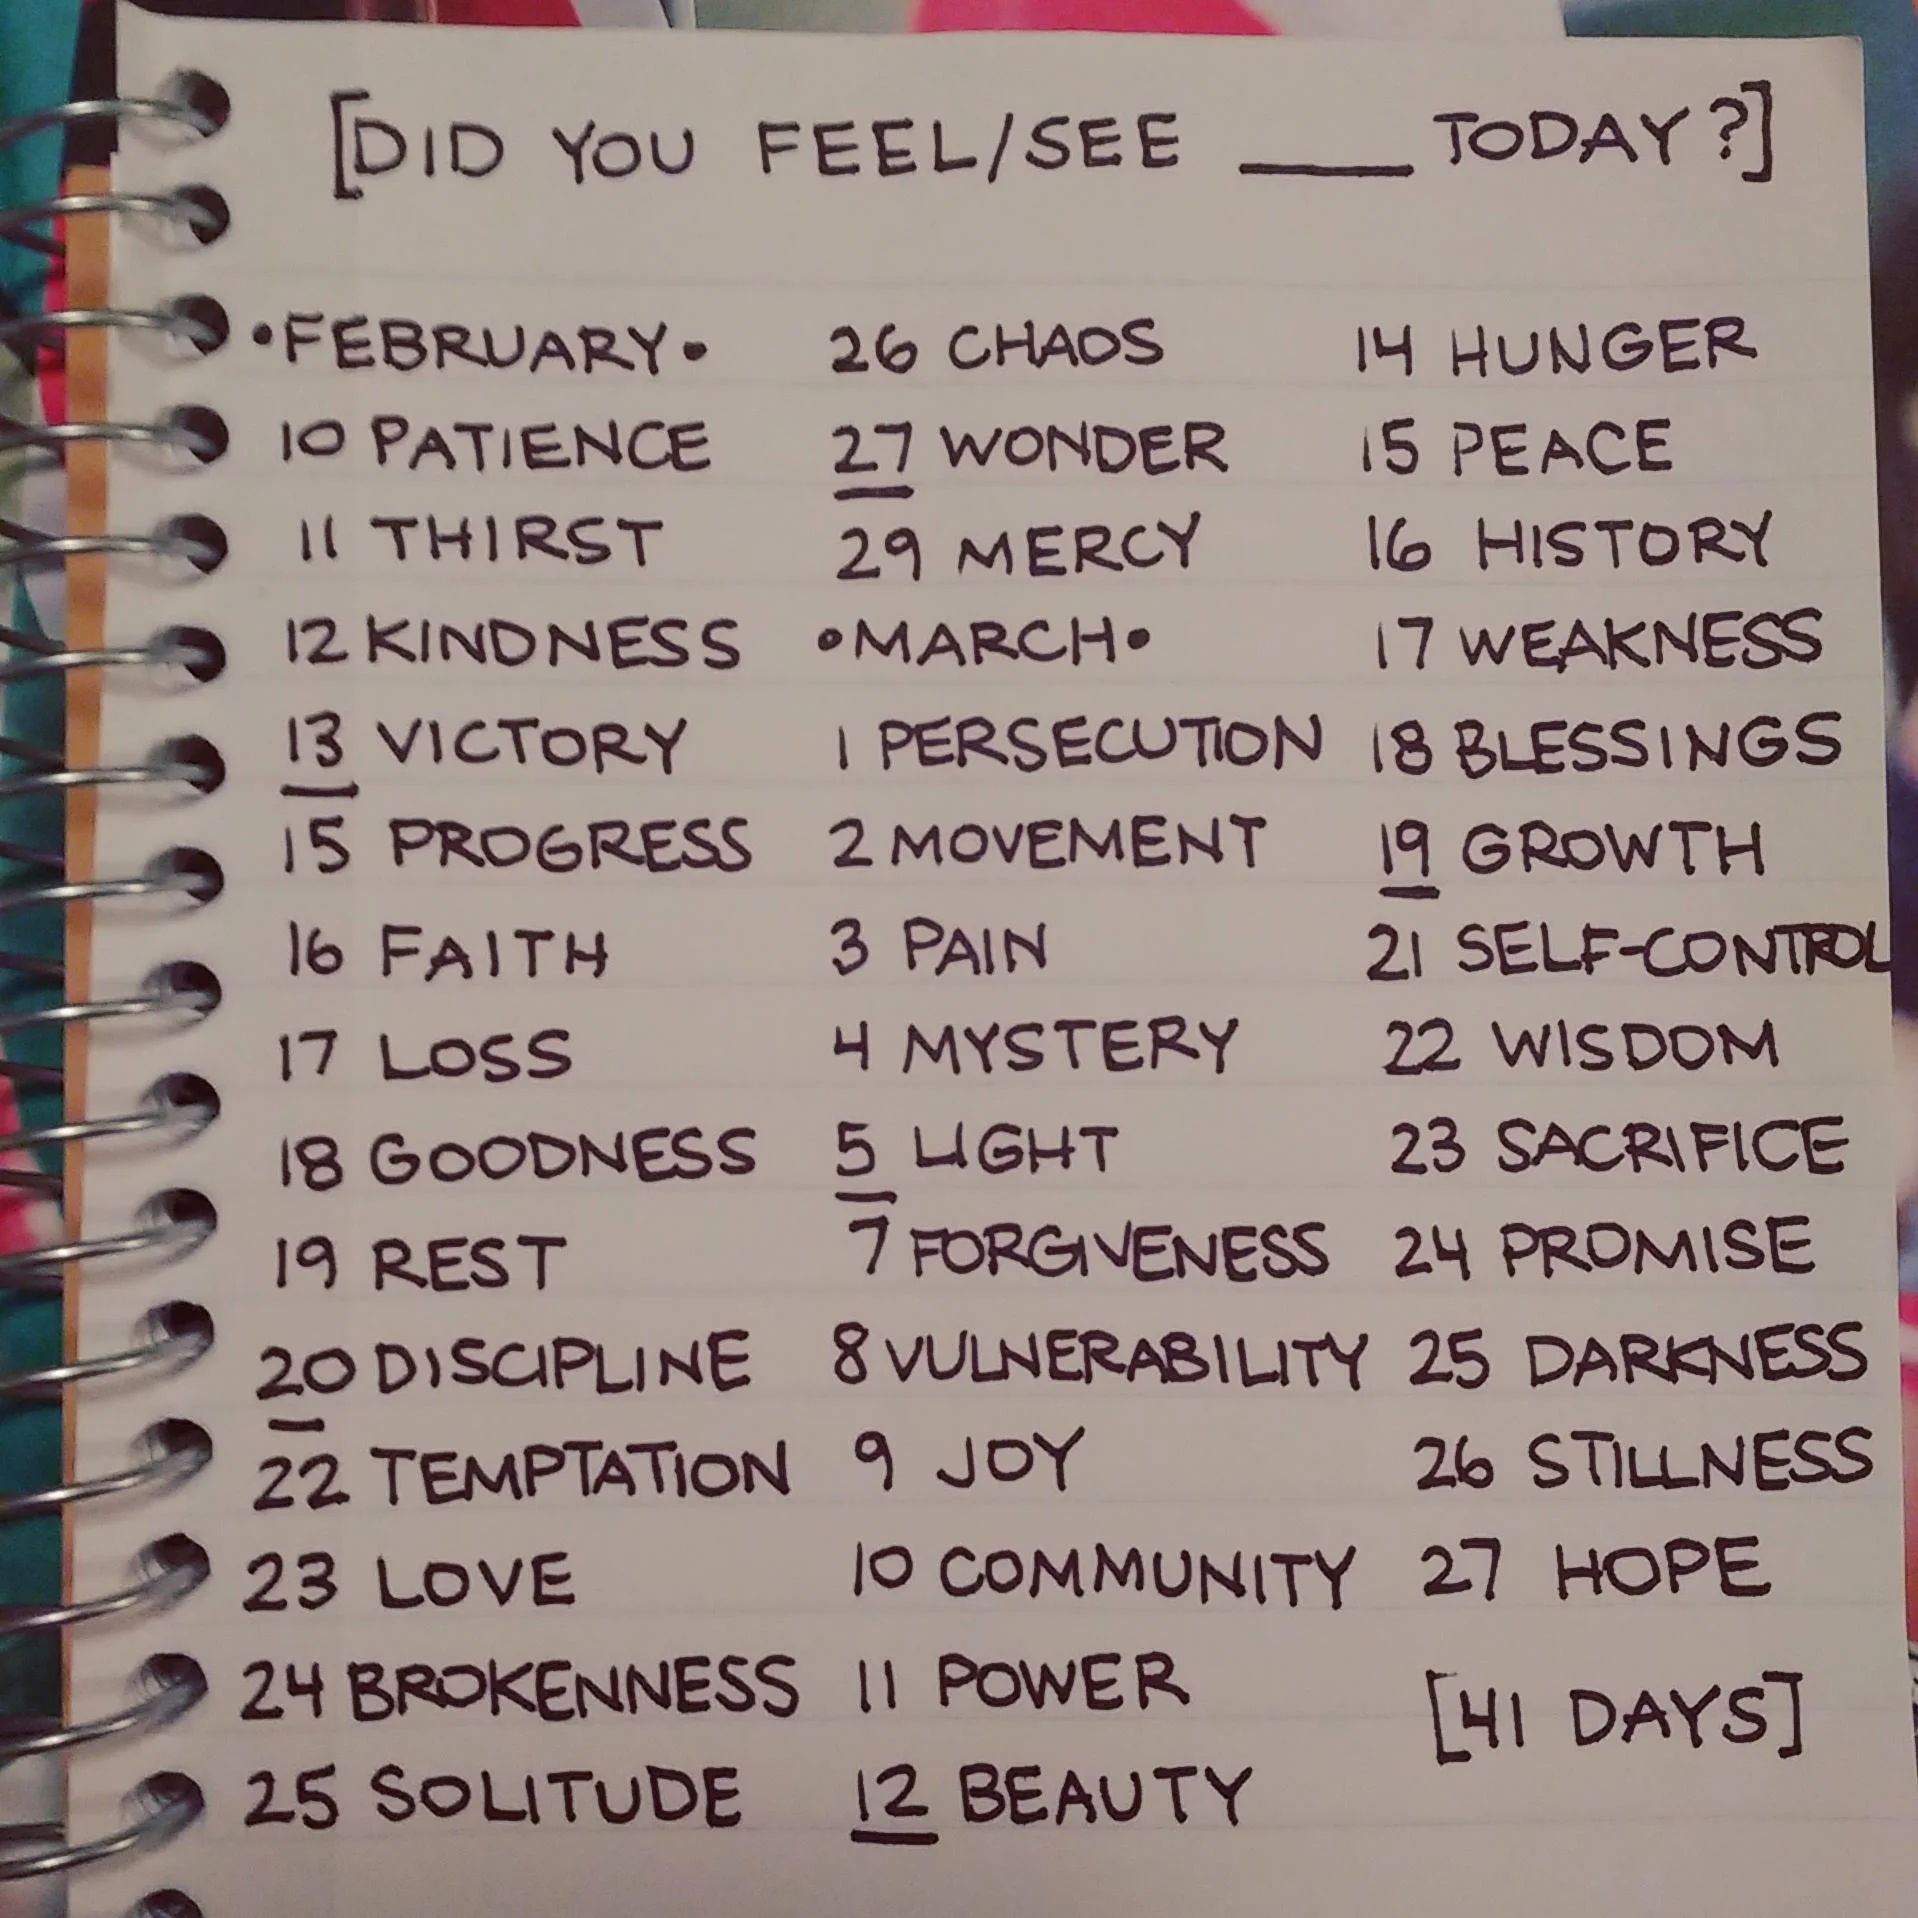 [DID YOU FEEL/SEE ___ TODAY?]
•FEBRUARY•
10 PATIENCE
11 THIRST
12 KINDNESS
13 VICTORY
15 PROGRESS
16 FAITH
17 LOSS
18 GOODNESS
19 REST
20 DISCIPLINE
22 TEMPTATION
23 LOVE
24 BROKENNESS
25 SOLITUDE
26 CHAOS
27 WONDER
29 MERCY
•MARCH•
1 PERSECUTION
2 MOVEMENT
3 PAIN
4 MYSTERY
5 LIGHT
7 FORGIVENESS
8 VULNERABILITY
9 JOY
10 COMMUNITY
11 POWER
12 BEAUTY
14 HUNGER
15 PEACE
16 HISTORY
17 WEAKNESS
18 BLESSINGS
19 GROWTH
21 SELF-CONTROL
22 WISDOM
23 SACRIFICE
24 PROMISE
25 DARKNESS
26 STILLNESS
27 HOPE
[41 DAYS]